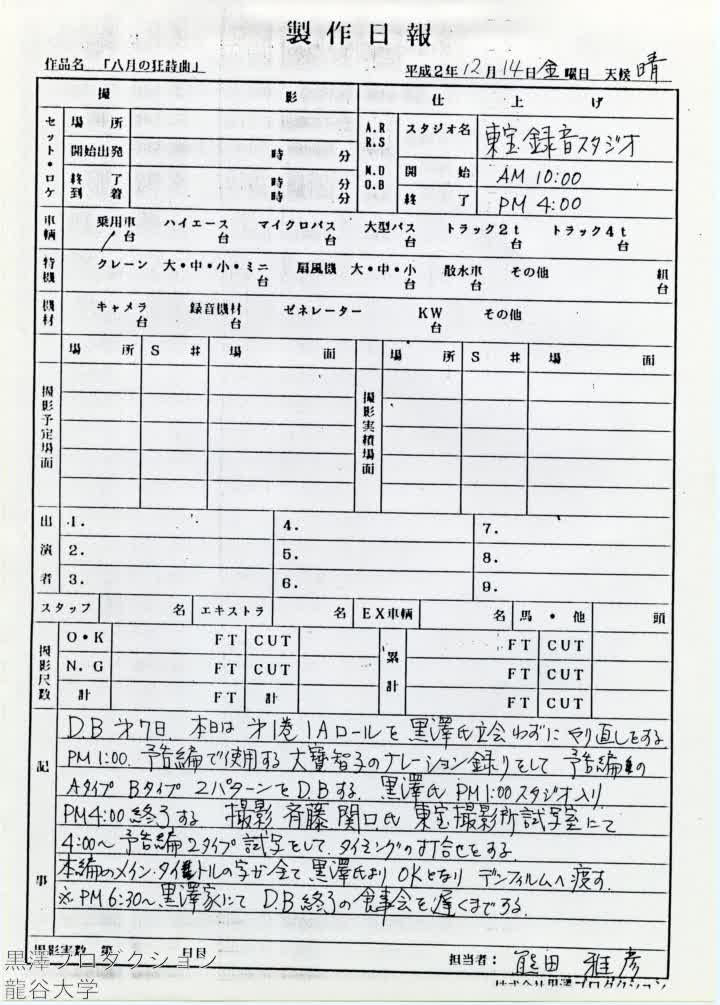 製作日報
作品名 「八月の狂詩曲」 平成2年12月14日金曜日 天候 晴
撮 影 仕 上 げ
セット・ロケ 場 所 A.R R.S スタジオ名 東宝録音スタジオ
開始出発 時 分 M.D D.B 開 始 AM 10:00
終了到着 時 分 時 分 終 了 PM 4:00
車輌 乗用車 台 ハイエース 台 マイクロバス 台 大型バス 台 トラック2t 台 トラック4t 台
特機 クレーン 大・中・小・ミニ 台 扇風機 大・中・小 台 散水車 台 その他 組 台
機材 キャメラ 台 録音機材 台 ゼネレーター KW 台 その他
場 所 S # 場 面 場 所 S # 場 面
撮影予定場面 撮影実績場面
出演者 1. 4. 7.
2. 5. 8.
3. 6. 9.
スタッフ 名 エキストラ 名 EX車輌 名 馬・他 頭
撮影尺数 O・K FT CUT 累計 FT CUT
N.G FT CUT FT CUT
計 FT 計 FT CUT
記事
D.B 第7日、本日は第1巻1Aロールを黒澤氏立会わずにやり直しをする
PM1:00. 予告編で使用する大寳智子のナレーション録りをして 予告編の
Aタイプ Bタイプ 2パターンをD.Bする. 黒澤氏 PM1:00スタジオ入り
PM4:00終了する. 撮影 斉藤 関口氏 東宝撮影所試写室にて
4:00〜予告編2タイプ試写をして、タイミングの打合せをする.
本編のメイン・タイトルの字が全て、黒澤氏よりOKとなり デンフィルムへ渡す.
※PM6:30〜黒澤家にて D.B終了の食事会を遅くまでする.
撮影実数 第 日目 担当者: 熊田雅彦
株式会社黒澤プロダクション
黒澤プロダクション
龍谷大学